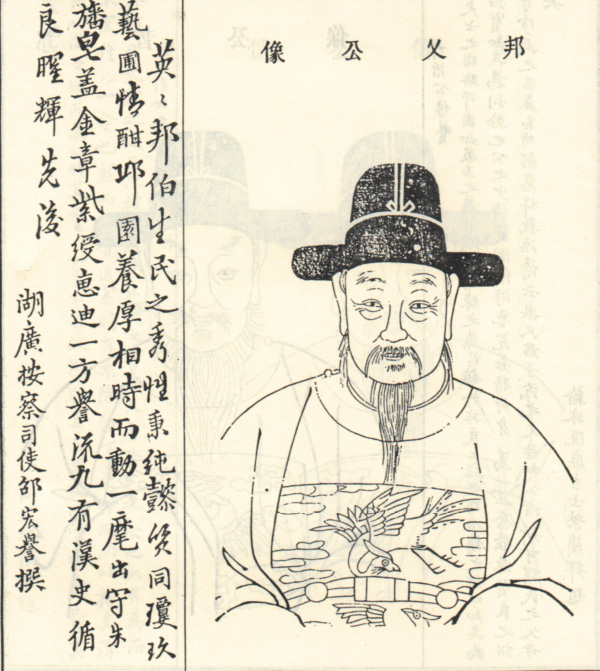 邦乂公像
英〻邦伯生民之秀性秉純懿質同瓊玖
藝圃情酣邱園養厚相時而動一麾出守朱
旛皂盖金章紫綬惠迪一方譽流九有漢史循
良暉輝先後
湖廣按察司使邵宏譽撰